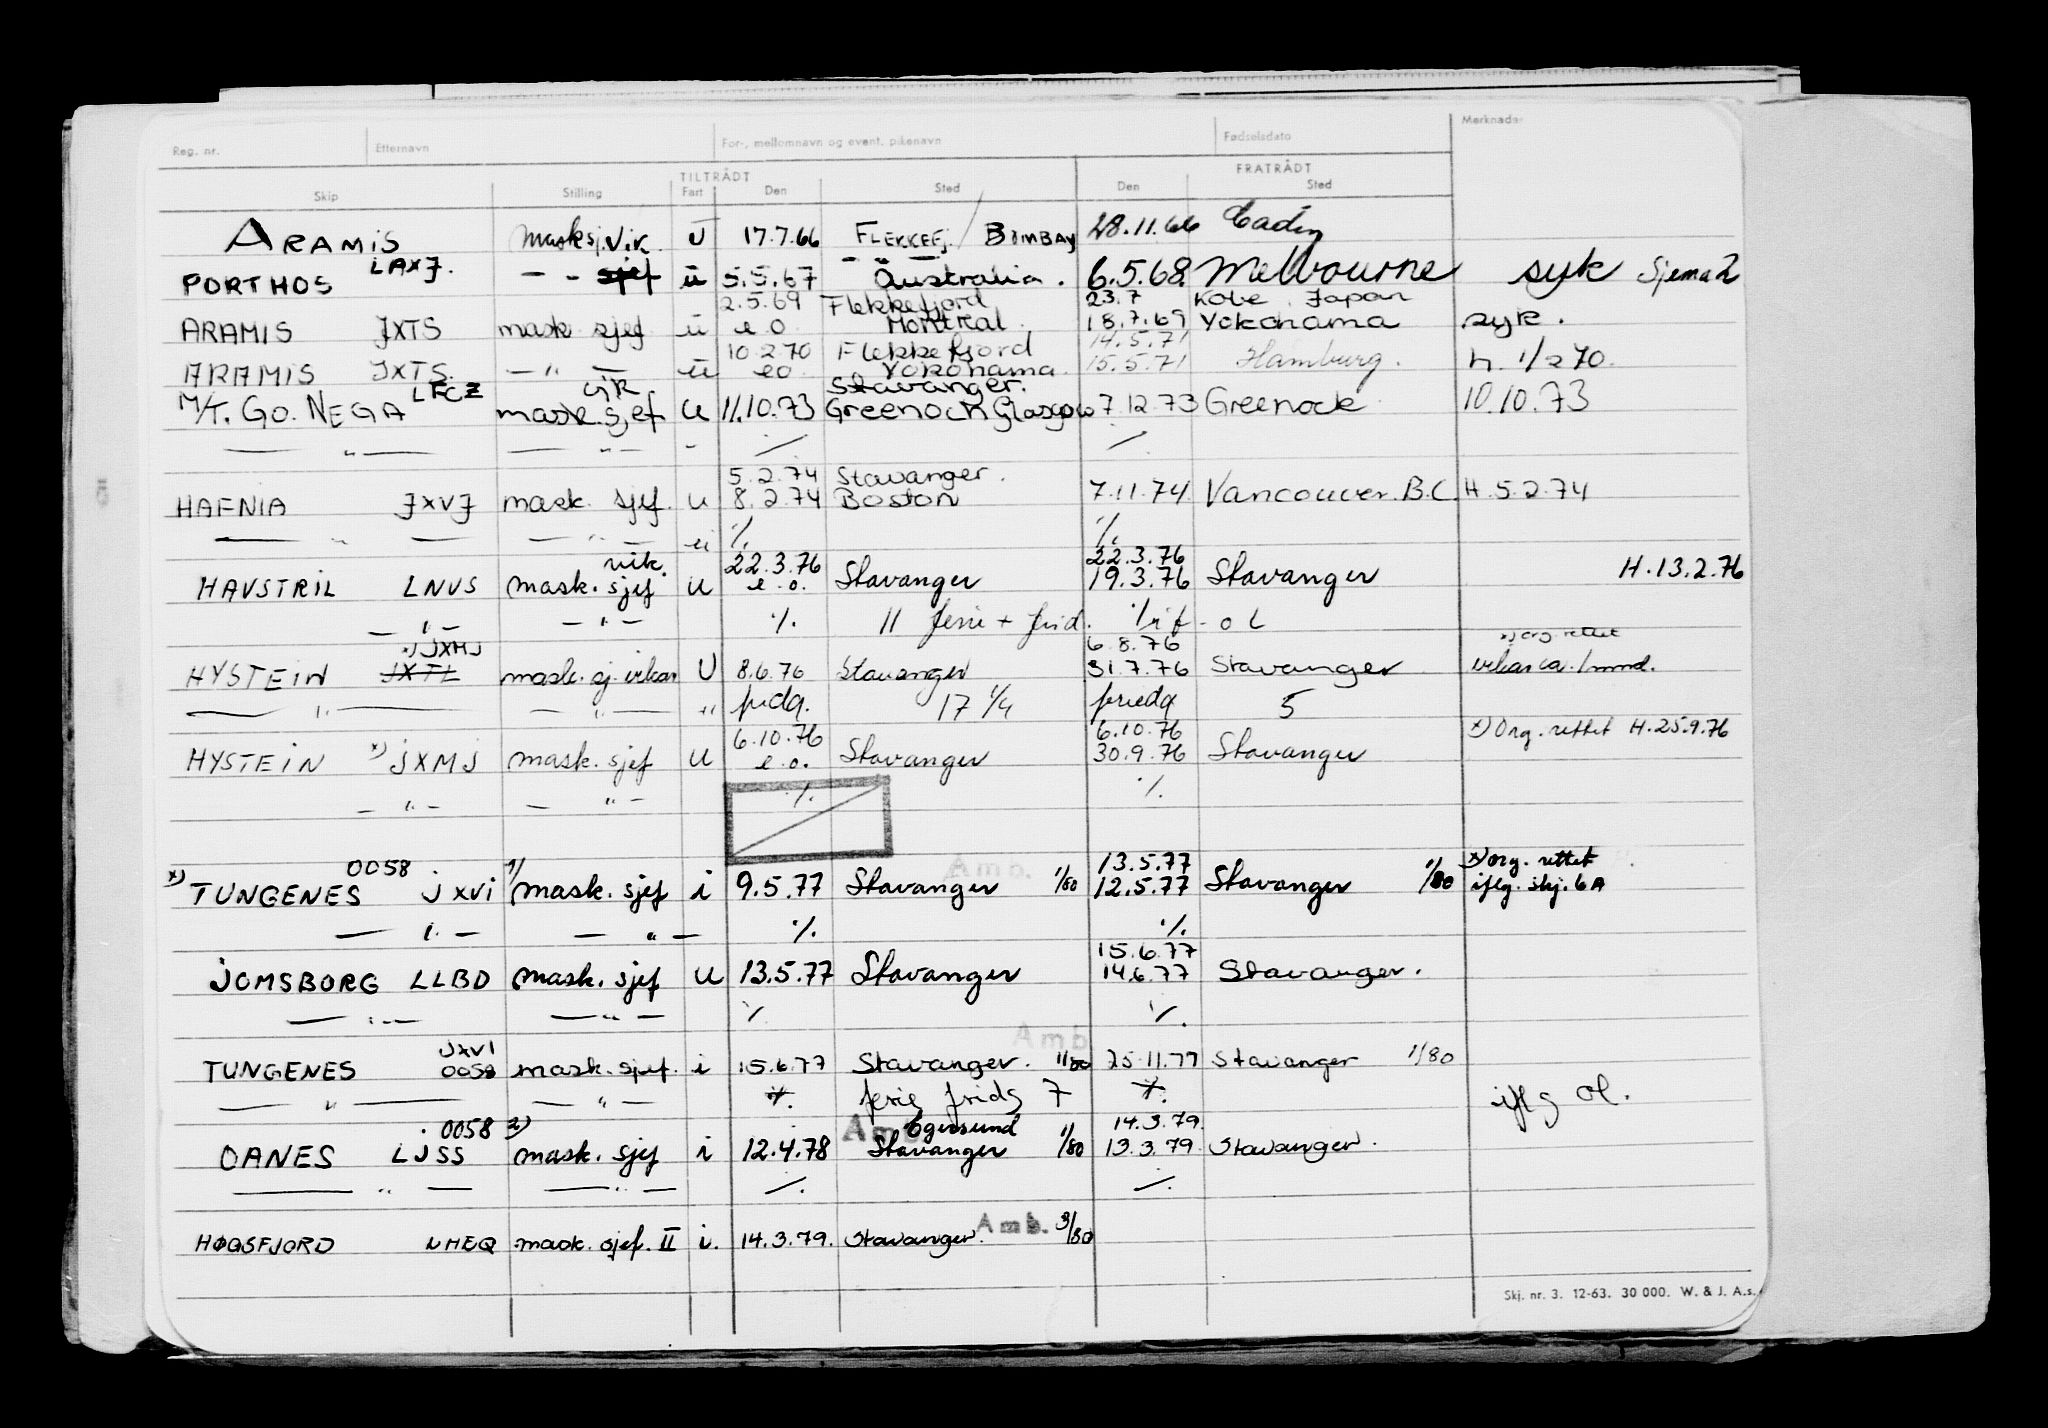 Reg. nr. Etternavn For-, mellomnavn og event. pikenavn Fødselsdato Merknader
TILTRÅDT FRATRÅDT
Skip Stilling Fart Den Sted Den Sted
ARAMIS masksj.vik. U 17.7.66 FLEKKEFJ. / BOMBAY 28.11.66
PORTHOS LAXJ. — " — sjef u 5.5.67 Australia. 6.5.68. Melbourne syk Sjema 2
2.5.69 Flekkefjord 23.7 Kobe Japan
ARAMIS JXTS mask. sjef u e.o. Montreal 18.7.69 Yokohama syk.
10.2.70 Flekkefjord 14.5.71
ARAMIS JXTS. — " — u eo. Yokohama. 15.5.71 Hamburg. h. 1/2 70.
LFCZ vik Stavanger.
M/T. GO. NEGA mask. sjef u 11.10.73 Greenock Glasgow 7.12.73 Greenock 10.10.73
— " — — " — - ./. ./.
5.2.74 Stavanger.
HAFNIA JXVJ mask. sjef. u 8.2.74 Boston 7.11.74 Vancouver. B.C. H. 5.2.74
— " — — " — u ./. ./.
vik. 22.3.76 22.3.76
HAVSTRIL LNVS mask. sjef. u e.o. Stavanger 19.3.76 Stavanger H. 13.2.76
— " — — " — ./. 11 ferie + frid.
JXMJ 6.8.76 x) org. rettet
HYSTEIN JXTL mask. sj. vikar U 8.6.76 Stavanger 31.7.76 Stavanger vikar ca. 1 mnd.
— " — — " — " 17 1/4 5
6.10.76 6.10.76 x) Org. rettet H. 25.9.76
HYSTEIN x) JXMJ mask. sjef u e.o. Stavanger 30.9.76 Stavanger
— " — — " — ./. ./.
0058 1/ Amb. 13.5.77 x) org. rettet
x) TUNGENES JXVI mask. sjef i 9.5.77 Stavanger 1/80 12.5.77 Stavanger 1/80 iflg. skj. 6A
— " — — " — ./. ./.
15.6.77
JOMSBORG LLBD mask. sjef u 13.5.77 Stavanger 14.6.77 Stavanger.
— " — — " — ./. ./.
JXVI Amb.
TUNGENES 0058 mask. sjef. i 15.6.77 Stavanger. 1/80 25.11.77 Stavanger 1/80
— " — — " — ./. ferie frids 7 ./. iflg ol.
0058 2) Amb. Egersund 14.3.79.
OANES LJSS mask. sjef i 12.4.78 Stavanger 1/80 13.3.79. Stavanger.
— " — — " — ./. ./.
HØGSFJORD LMEQ mask. sjef. II i. 14.3.79. Stavanger. Amb. 3/80
Skj. nr. 3. 12-63. 30 000. W. & J. A.s.